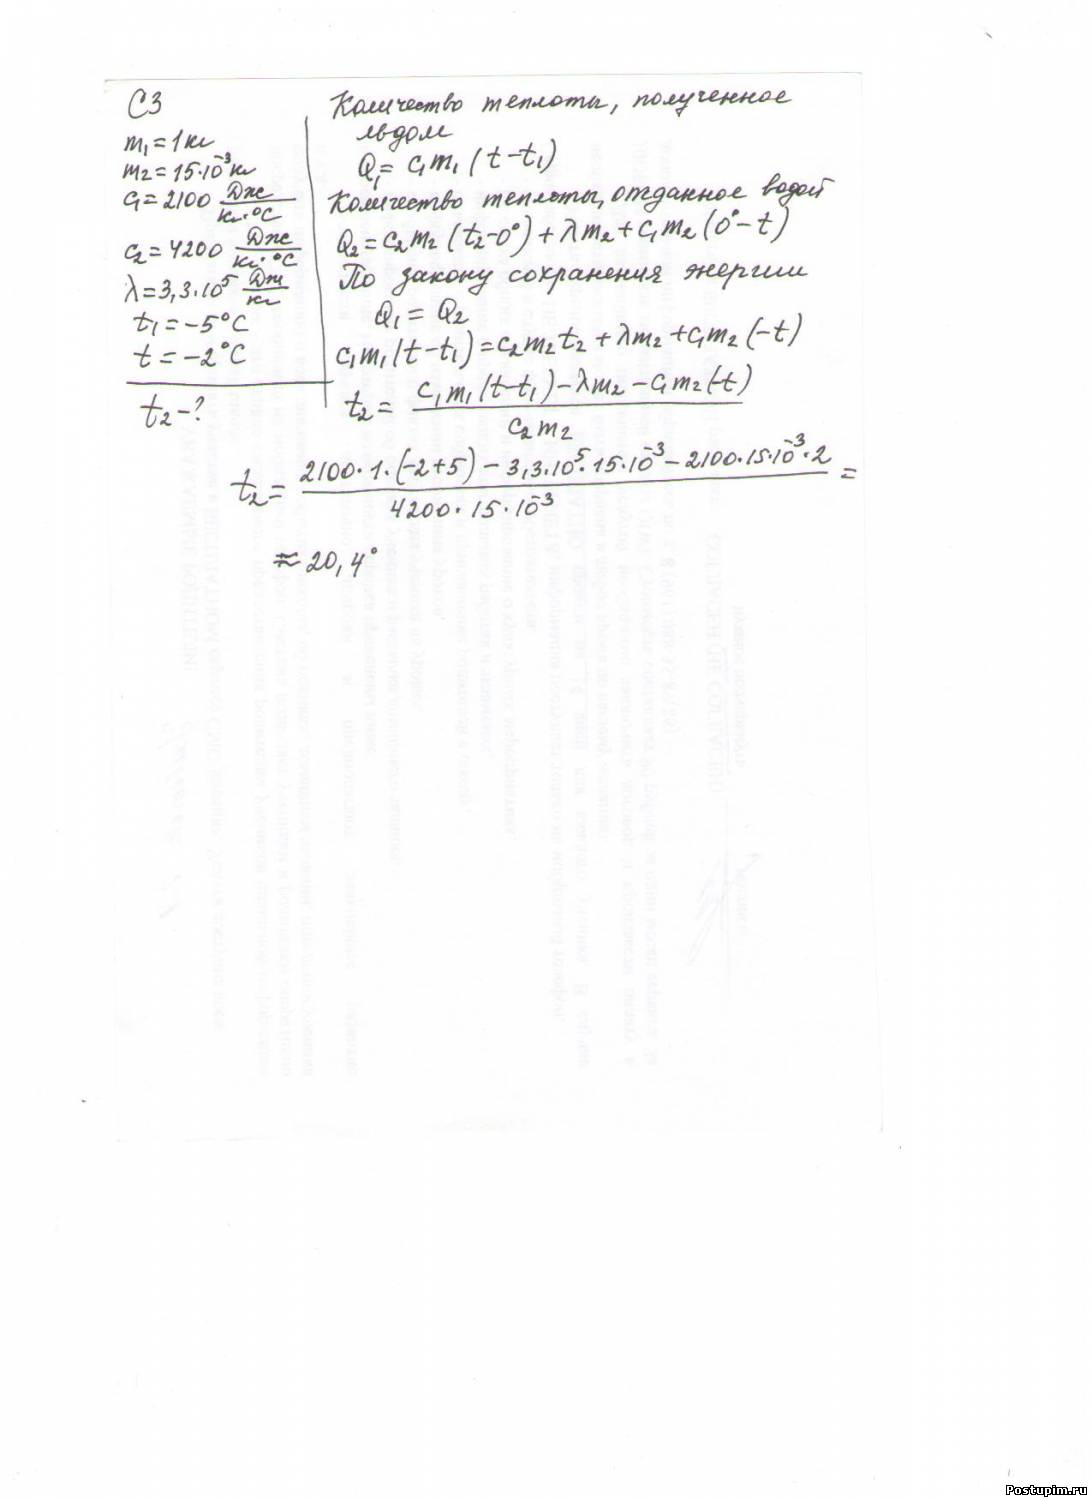 С3
m₁ = 1 кг
m₂ = 15·10⁻³ кг
c₁ = 2100 Дж/кг·°С
c₂ = 4200 Дж/кг·°С
λ = 3,3·10⁵ Дж/кг
t₁ = -5°С
t = -2°С
t₂ - ?
Количество теплоты, полученное
льдом
Q₁ = c₁m₁(t-t₁)
Количество теплоты, отданное водой
Q₂ = c₂m₂(t₂-0°) + λm₂ + c₁m₂(0°-t)
По закону сохранения энергии
Q₁ = Q₂
c₁m₁(t-t₁) = c₂m₂t₂ + λm₂ + c₁m₂(-t)
t₂ = (c₁m₁(t-t₁) - λm₂ - c₁m₂(-t)) / c₂m₂
t₂ = (2100·1·(-2+5) - 3,3·10⁵·15·10⁻³ - 2100·15·10⁻³·2) / 4200·15·10⁻³ =
≈ 20,4°
Postupim.ru